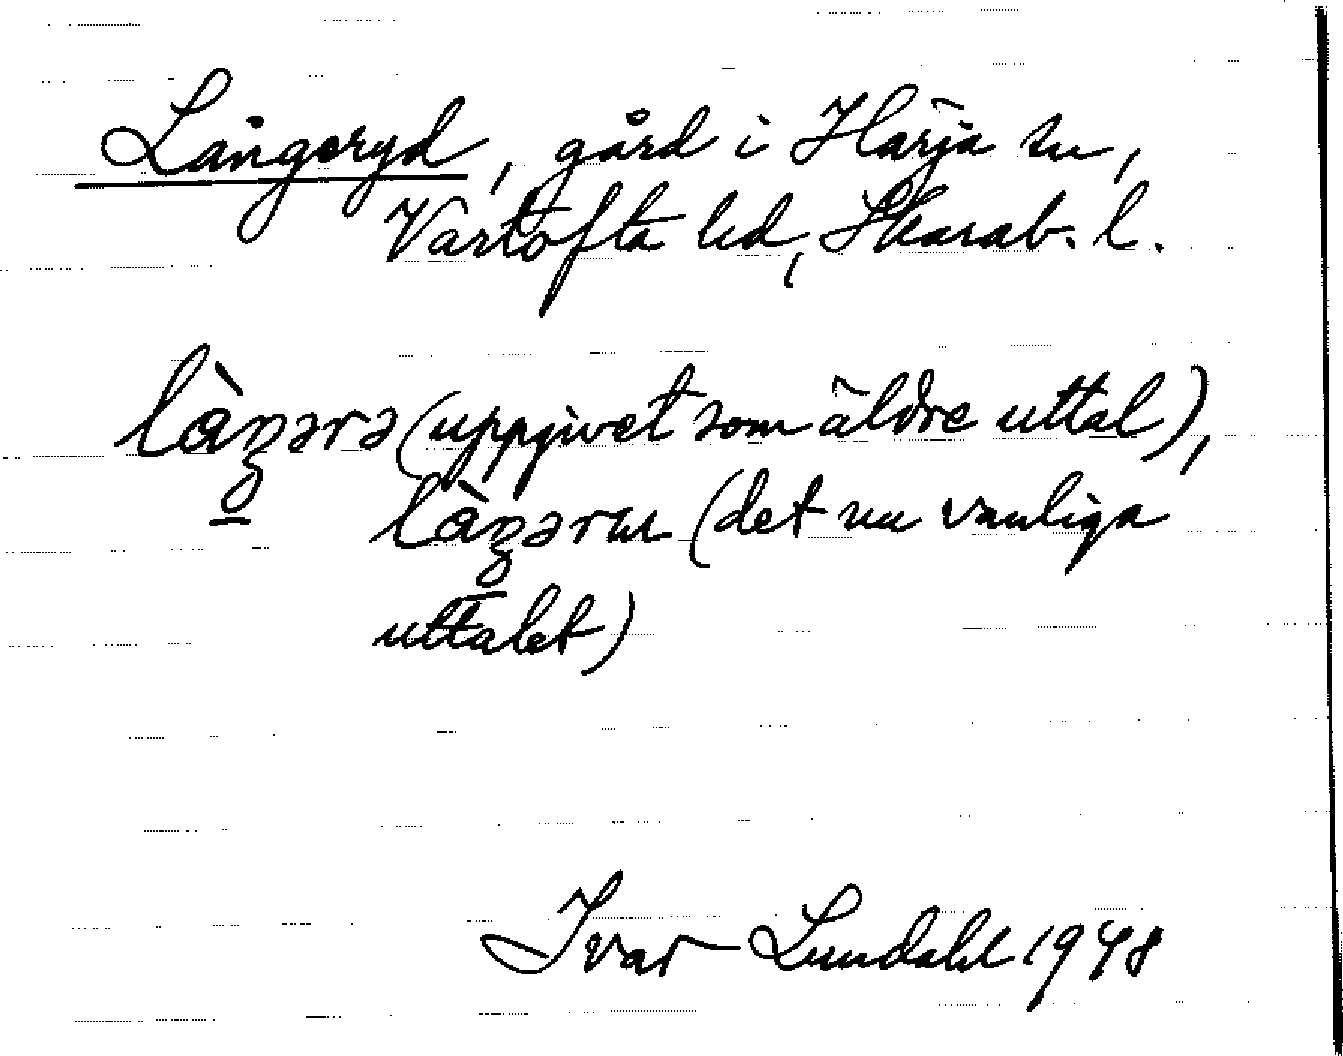 Långeryd, gård i Härja sn,
Vartofta hd, Skarab. l.
làꞑərə (uppgivet som äldre uttal),
làꞑərɯ (det nu vanliga
uttalet)
Ivar Lundahl 1948